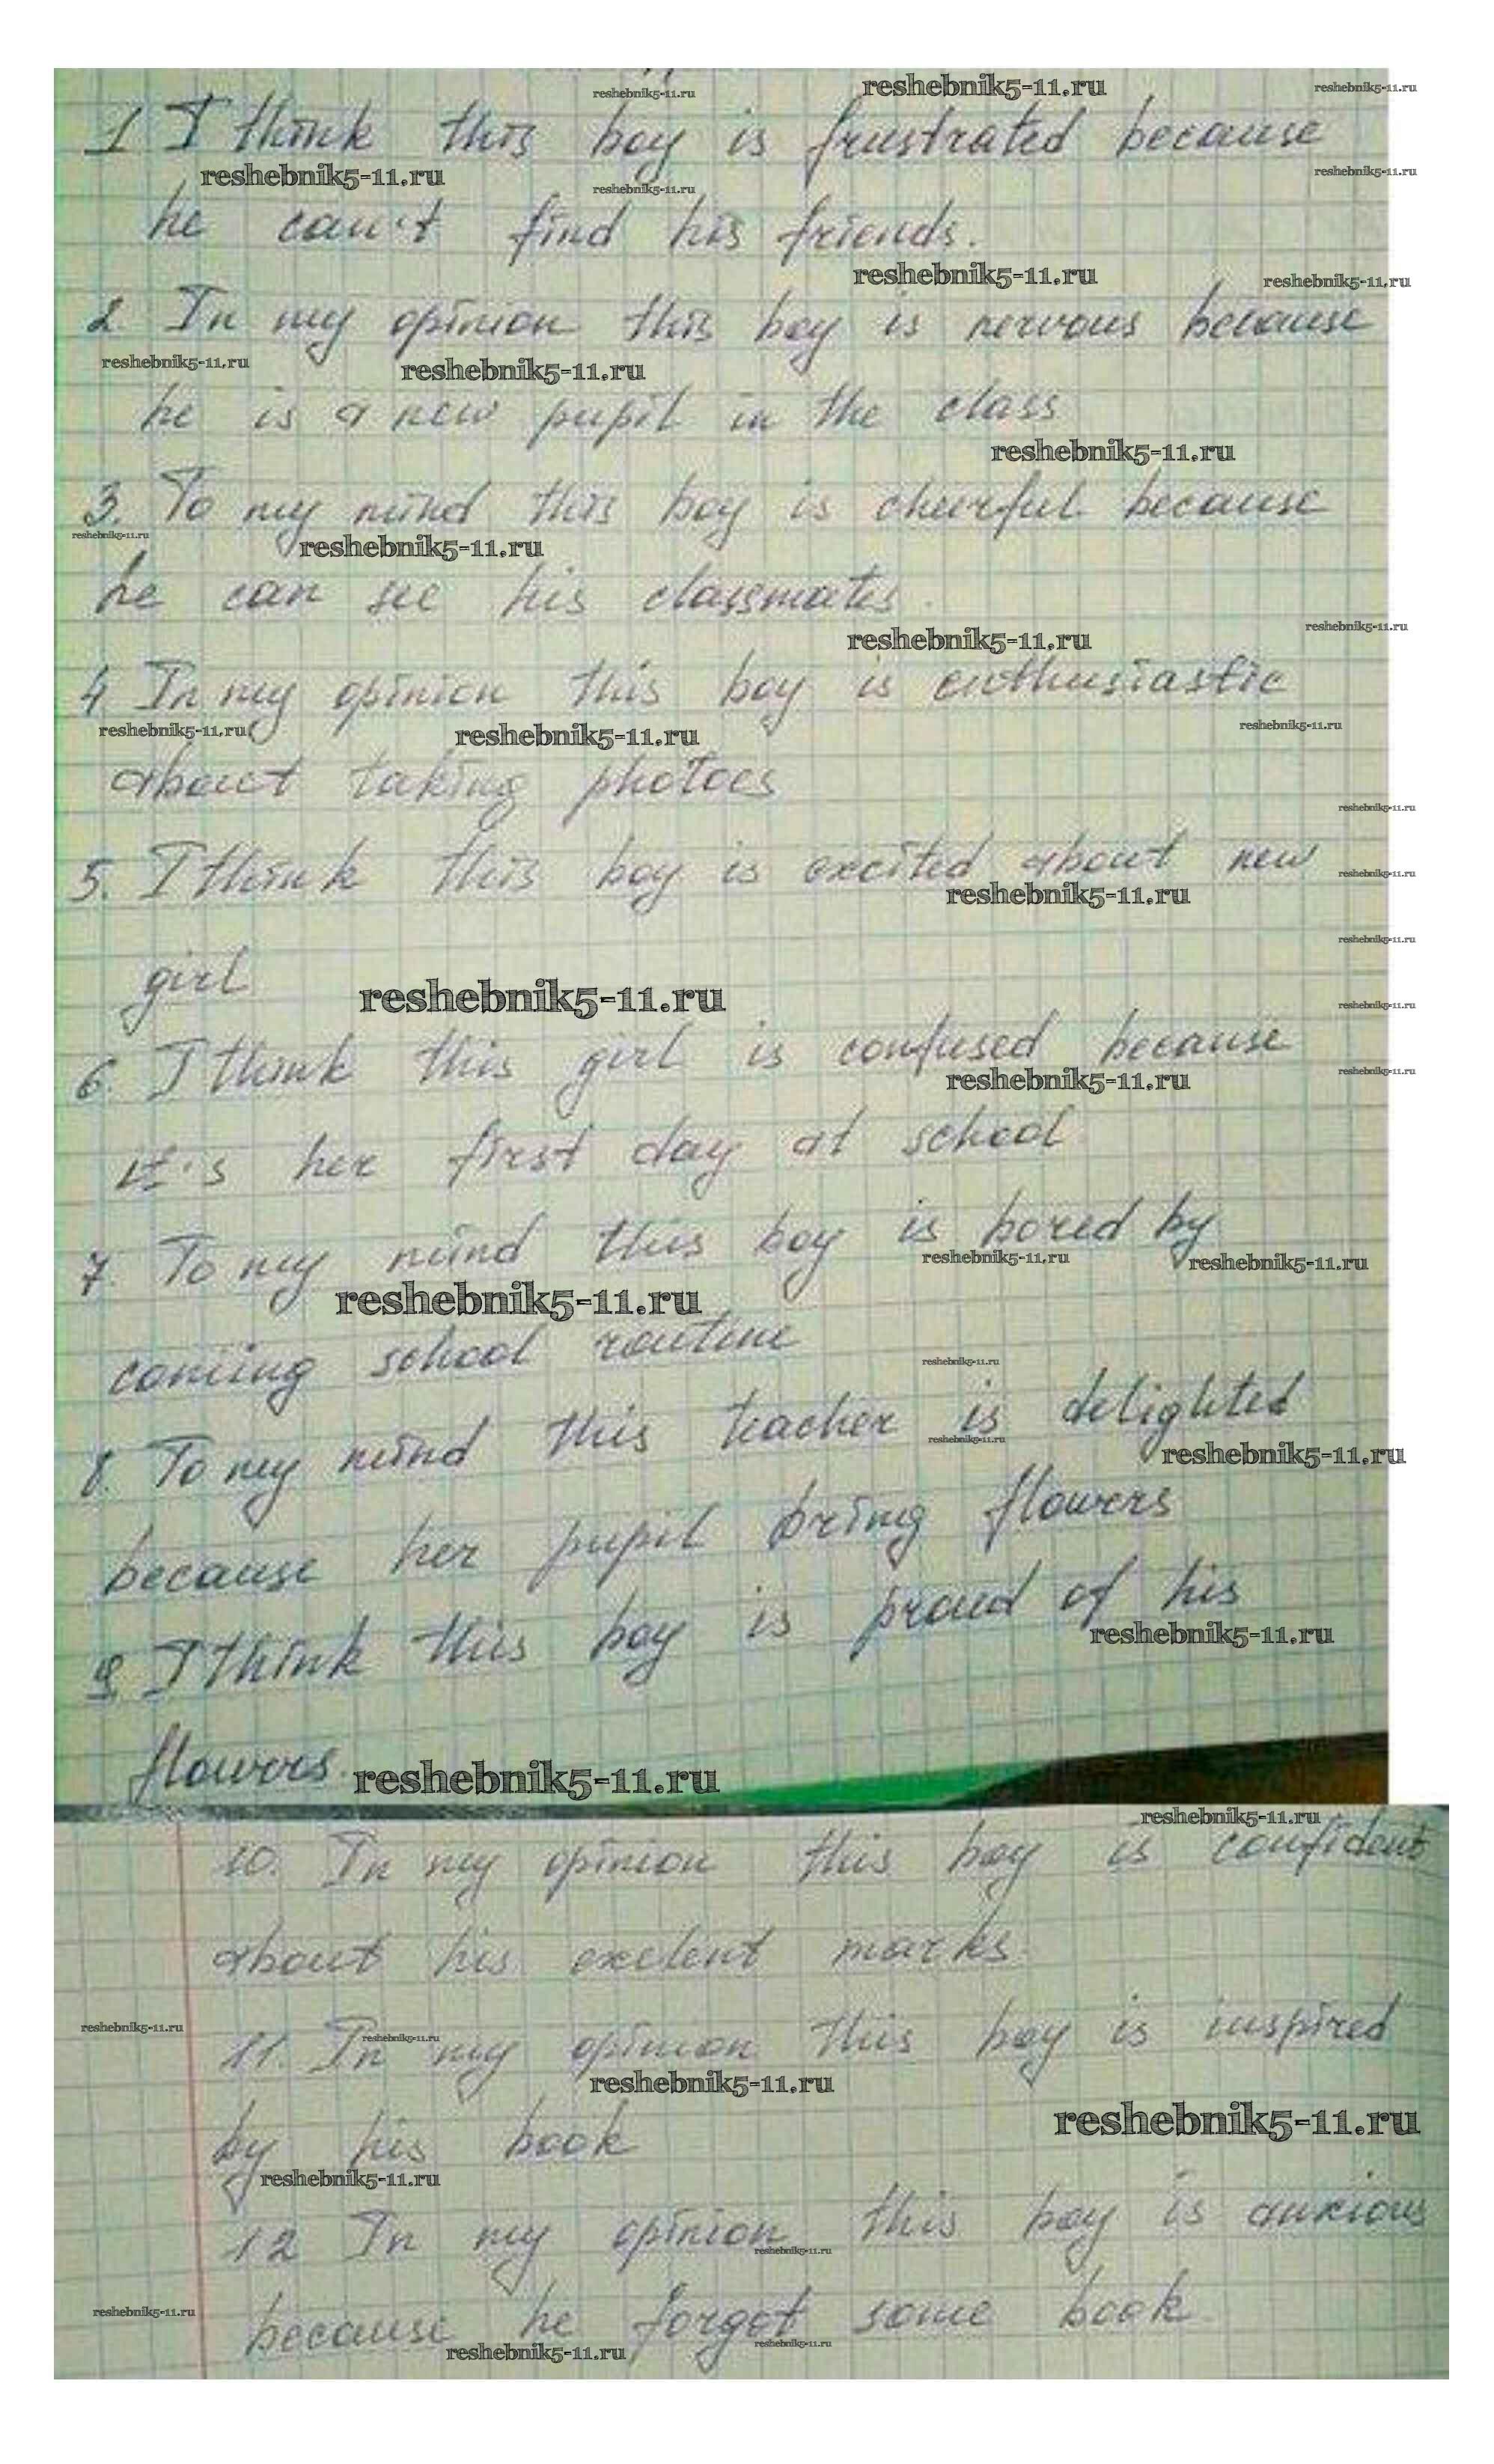 1 I think this boy is frustrated because
he can't find his friends.
2. In my opinion this boy is nervous because
he is a new pupil in the class
3. To my mind this boy is cheerful because
he can see his classmates.
4. In my opinion this boy is enthusiastic
about taking photoes
5. I think this boy is excited about new
girl
6. I think this girl is confused because
it's her first day at school
7. To my mind this boy is bored by
coming school routine
8. To my mind this teacher is delighted
because her pupil bring flowers
9 I think this boy is proud of his
flowers.
10. In my opinion this boy is confident
about his exelent marks.
11. In my opinion this boy is inspired
by his book
12 In my opinion this boy is anxious
because he forgot some book
reshebnik5-11.ru